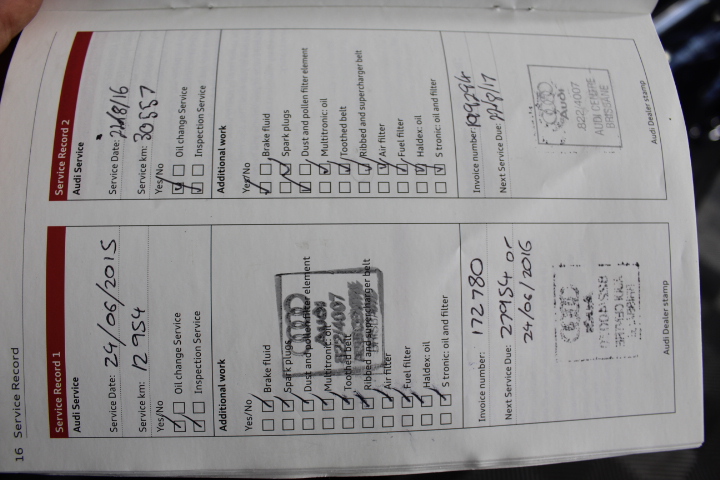 16 Service Record
Service Record 1
Audi Service
Service Date: 24/06/2015
Service km: 12954
Yes/No
Oil change Service
Inspection Service
Additional work
Yes/No
Brake fluid
Spark plugs
Dust and pollen filter element
Multitronic: oil
Toothed belt
Ribbed and supercharger belt
Air filter
Fuel filter
Haldex: oil
S tronic: oil and filter
Invoice number: 172780
Next Service Due: 27954 or
24/06/2016
Audi Dealer stamp
Service Record 2
Audi Service
Service Date: 22/8/16
Service km: 30557
Yes/No
Oil change Service
Inspection Service
Additional work
Yes/No
Brake fluid
Spark plugs
Dust and pollen filter element
Multitronic: oil
Toothed belt
Ribbed and supercharger belt
Air filter
Fuel filter
Haldex: oil
S tronic: oil and filter
Invoice number:
Next Service Due: 22/8/17
AUDI CENTRE
BRISBANE
Audi Dealer stamp